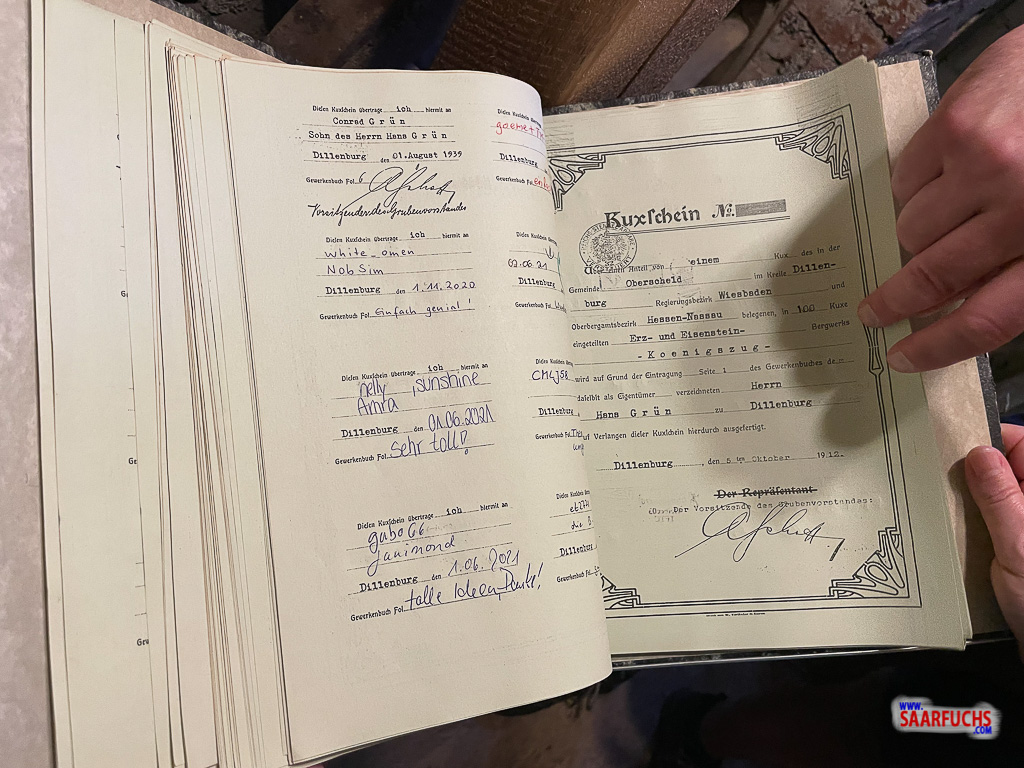 Diesen Kuxschein übertrage ich hiermit an
Conrad Grün
Sohn des Herrn Hans Grün
Dillenburg den 01.August 1939
Gewerkenbuch Fol. 6
Vorsitzender des Grubenvorstandes
Diesen Kuxschein übertrage ich hiermit an
white_omen
NobSim
Dillenburg den 1.11.2020
Gewerkenbuch Fol. Einfach genial!
Diesen Kuxschein übertrage ich hiermit an
nelly, sunshine
Amra
Dillenburg den 01.06.2021
Gewerkenbuch Fol. Sehr toll!
Diesen Kuxschein übertrage ich hiermit an
gabo66
janimond
Dillenburg den 1.06.2021
Gewerkenbuch Fol. tolle Ideen, Danke!
Diesen Kuxschein
Dillenburg
Gewerkenbuch Fol.
Diesen Kuxschein
02.06.21
Dillenburg
Gewerkenbuch Fol.
Diesen Kuxschein
Dillenburg
Gewerkenbuch Fol.
Diesen Kuxschein
Dillenburg
Gewerkenbuch Fol.
Kuxschein No.
Über den Anteil von einem Kux des in der
Gemeinde Oberscheld im Kreise Dillen-
burg Regierungsbezirk Wiesbaden und
Oberbergamtsbezirk Hessen-Nassau belegenen, in 100 Kuxe
eingeteilten Erz- und Eisenstein- Bergwerks
-Koenigszug-
wird auf Grund der Eintragung Seite 1 des Gewerkenbuches de
daselbst als Eigentümer verzeichneten Herrn
Hans Grün zu Dillenburg
auf Verlangen dieser Kuxschein hierdurch ausgefertigt.
Dillenburg, den 5ten Oktober 1912.
Der Repräsentant
Der Vorsitzende des Grubenvorstandes:
WWW.
SAARFUCHS
.COM